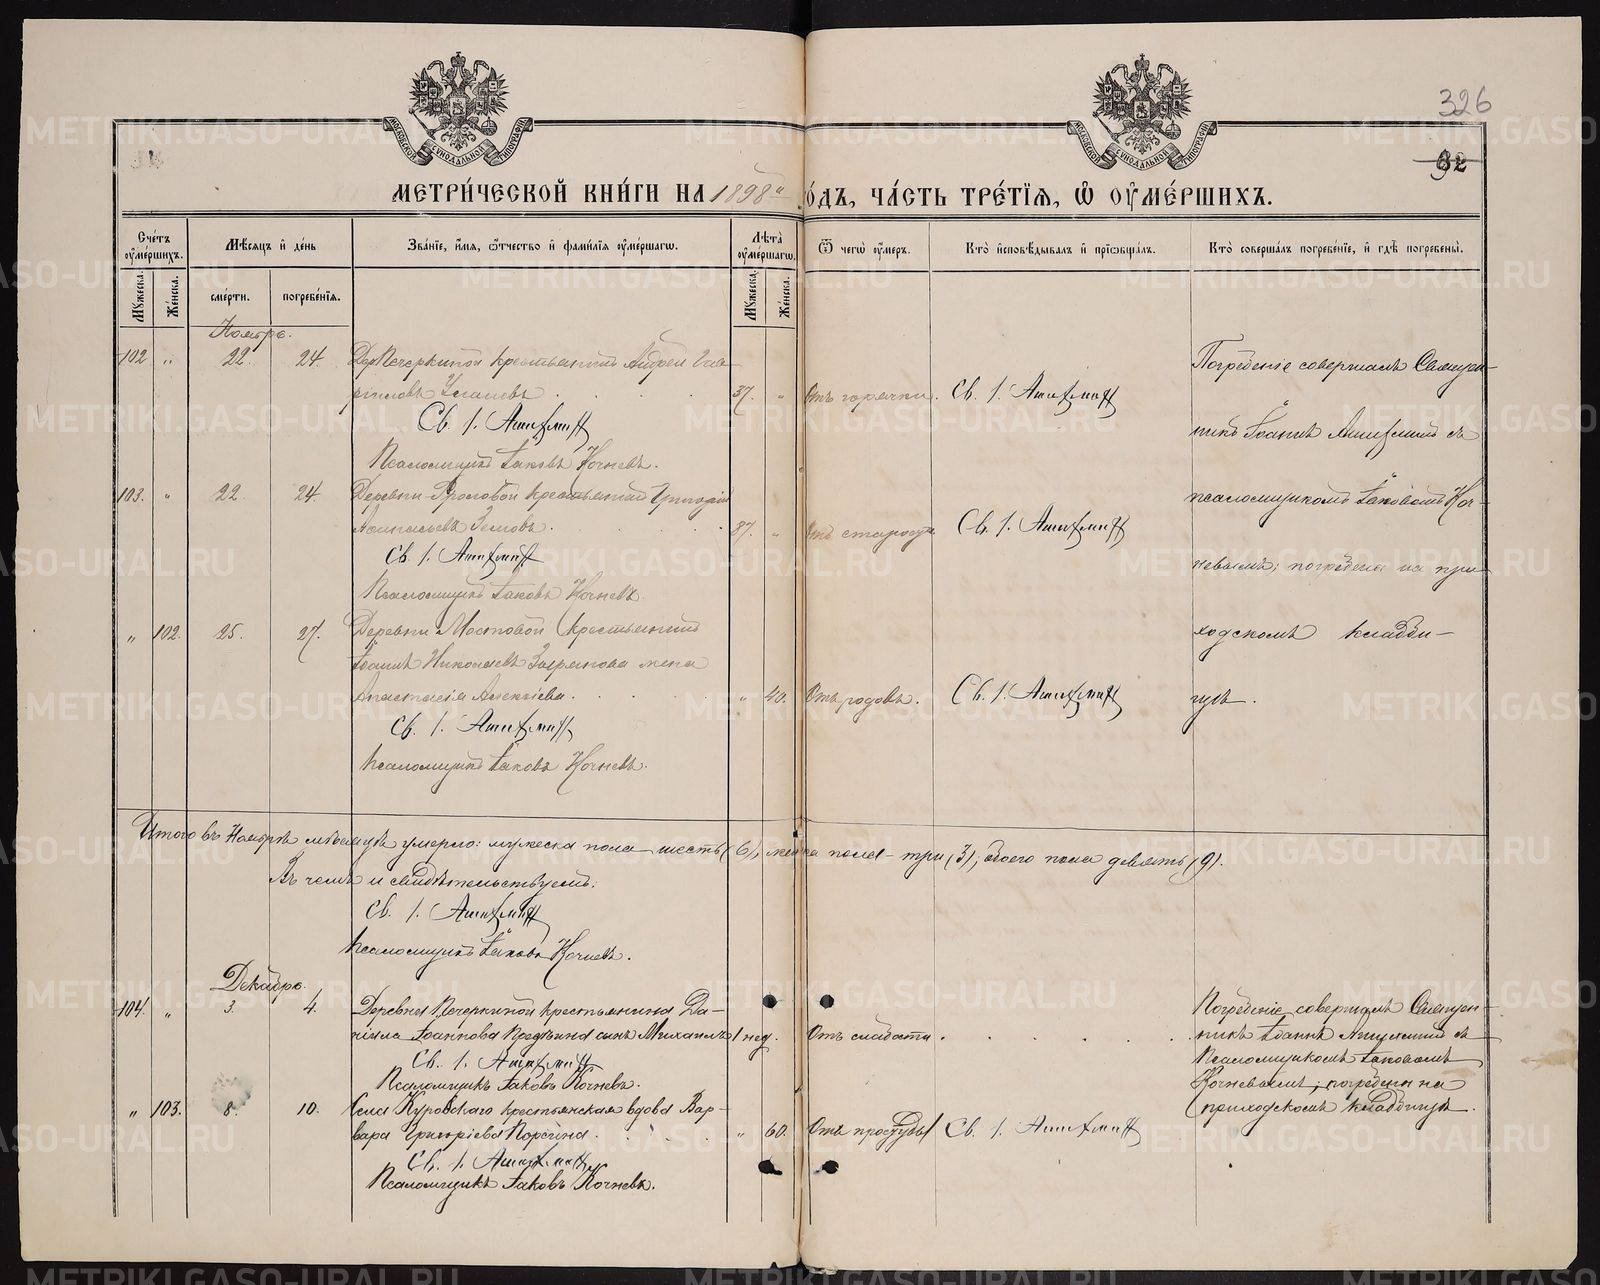 326
32
МЕТРИ́ЧЕСКОЙ КНИ́ГИ НА 1898 й
ГО́ДЪ, ЧА́СТЬ ТРЕ́ТІЯ, Ѡ ОУМЕ́РШИХЪ.
Сче́тъ оумершихъ.
Мужеска.
Женска.
Мѣсяцъ и день
смерти.
погребенія.
Званіе, имя, отчество и фамилія оумершагѡ.
Лѣта оумершагѡ.
Мужеска.
Женска.
Ѿ чегѡ оумеръ.
Кто исповѣдывалъ и пріобщалъ.
Кто совершалъ погребеніе, и гдѣ погребены.
Ноябрь.
102 " 22. 24. Дер. Печеркиной крестьянинъ Андрей Гав-
ріиловъ 37. " Отъ горячки. Св. І. Ашихминъ
Св. І. Ашихминъ
Псаломщикъ Іаковъ Кочневъ.
103. " 22 24. Деревни крестьянинъ Григорій
87. " Отъ старости. Св. І. Ашихминъ
Св. І. Ашихминъ
Псаломщикъ Іаковъ Кочневъ.
" 102. 25. 27. Деревни Мостовой крестьянина
Іоанна Николаева жена
Анастасія Алексіева. " 40. Отъ родовъ. Св. І. Ашихминъ
Св. І. Ашихминъ
Псаломщикъ Іаковъ Кочневъ.
Погребеніе совершалъ Священ-
никъ Іоаннъ Ашихминъ съ
псаломщикомъ Іаковомъ Коч-
невымъ; погребены на при-
ходскомъ кладби-
щѣ.
Итого въ Ноябрѣ мѣсяцѣ умерло: мужеска пола шесть (6), женска пола - три (3), обоего пола девять (9).
Въ чемъ и свидѣтельствуемъ:
Св. І. Ашихминъ
Псаломщикъ Іаковъ Кочневъ.
Декабрь.
104. " 3. 4. Деревни Печеркиной крестьянина Да-
ніила Іоаннова сынъ Михаилъ 1 нед. Отъ слабости.
Св. І. Ашихминъ
Псаломщикъ Іаковъ Кочневъ.
" 103. 8. 10. Села Куровскаго крестьянская вдова Вар-
вара Григоріева " 60. Отъ простуды Св. І. Ашихминъ
Св. І. Ашихминъ
Псаломщикъ Іаковъ Кочневъ.
Погребеніе совершалъ Священ-
никъ Іоаннъ Ашихминъ съ
Псаломщикомъ Іаковомъ
Кочневымъ, погребены на
приходскомъ кладбищѣ.
METRIKI.GASO-URAL.RU